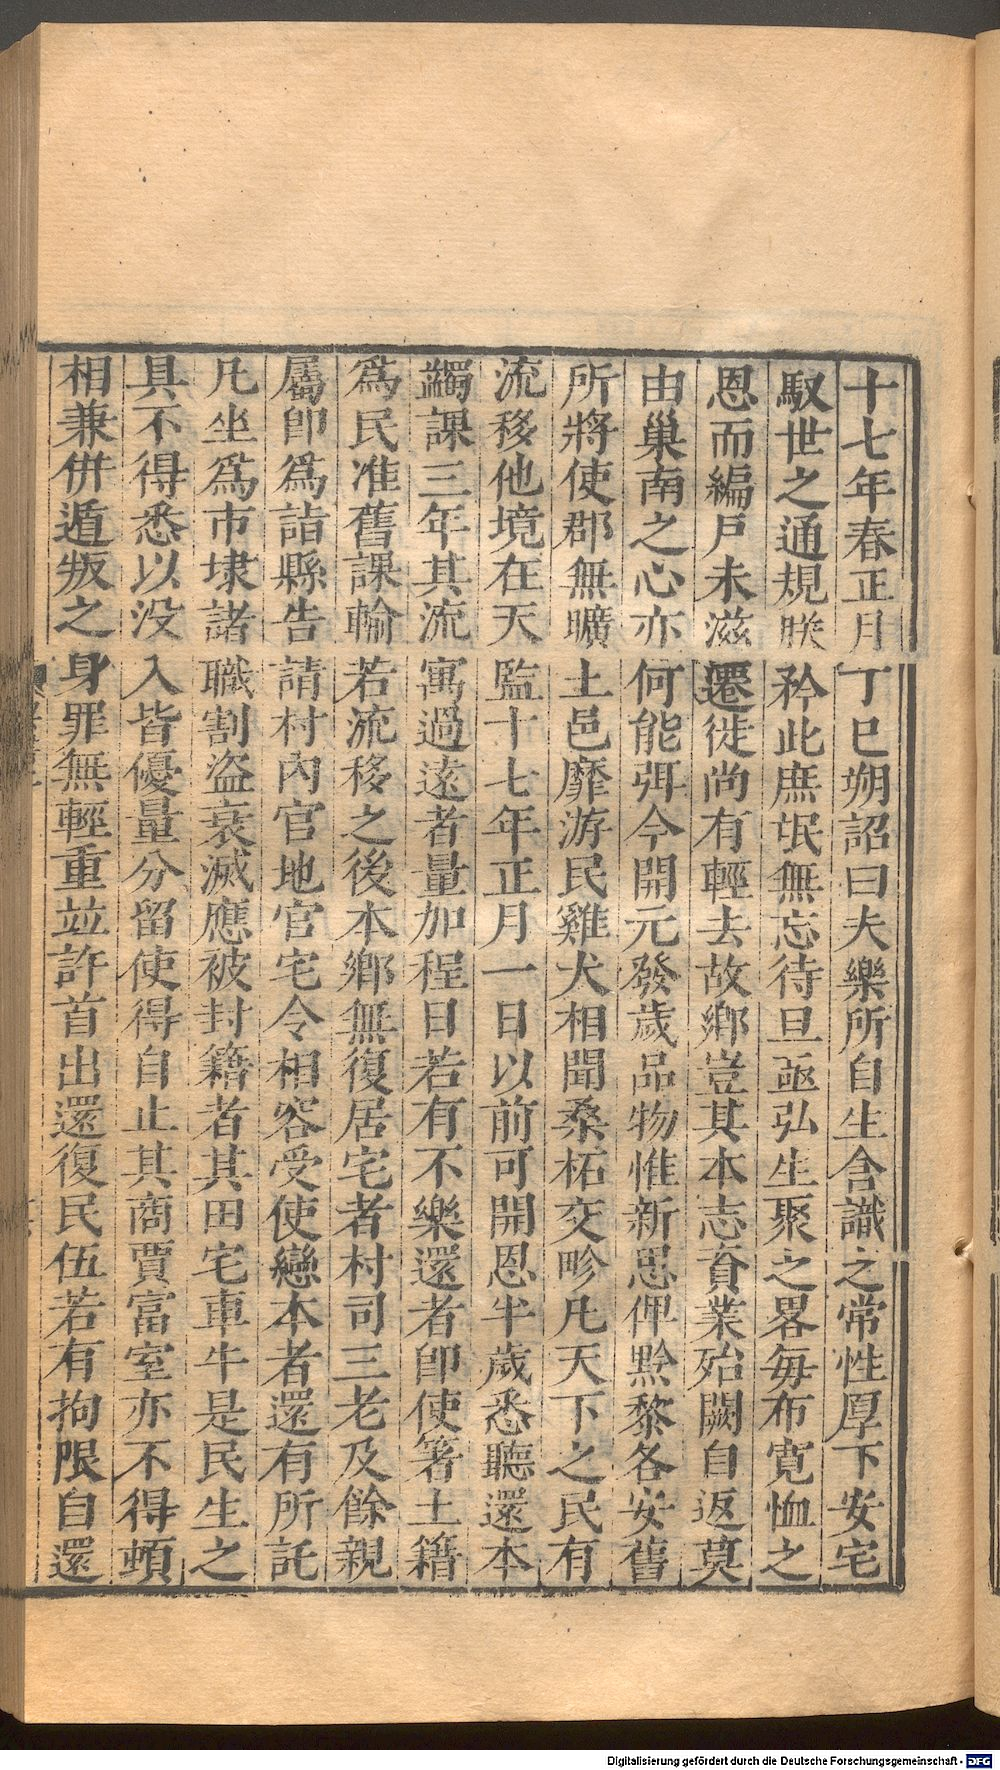 十七年春正月丁巳朔詔曰夫樂所自生含識之常性厚下安宅
馭世之通規朕矜此庶氓無忘待旦亟弘生聚之畧每布寬恤之
恩而編戶未滋遷徙尚有輕去故鄉豈其本志資業殆闕自返莫
由巢南之心亦何能弭今開元發歲品物惟新思俾黔黎各安舊
所將使郡無曠土邑靡游民雞犬相聞桑柘交畛凡天下之民有
流移他境在天監十七年正月一日以前可開恩半歲悉聽還本
蠲課三年其流寓過遠者量加程日若有不樂還者即使著土籍
爲民准舊課輸若流移之後本鄉無復居宅者村司三老及餘親
屬即爲詣縣告請村內官地官宅令相容受使戀本者還有所託
凡坐爲市埭諸職割盜衰滅應被封籍者其田宅車牛是民生之
具不得悉以没入皆優量分留使得自止其商賈富室亦不得頓
相兼併遁叛之身罪無輕重並許首出還復民伍若有拘限自還
Digitalisierung gefördert durch die Deutsche Forschungsgemeinschaft - DFG